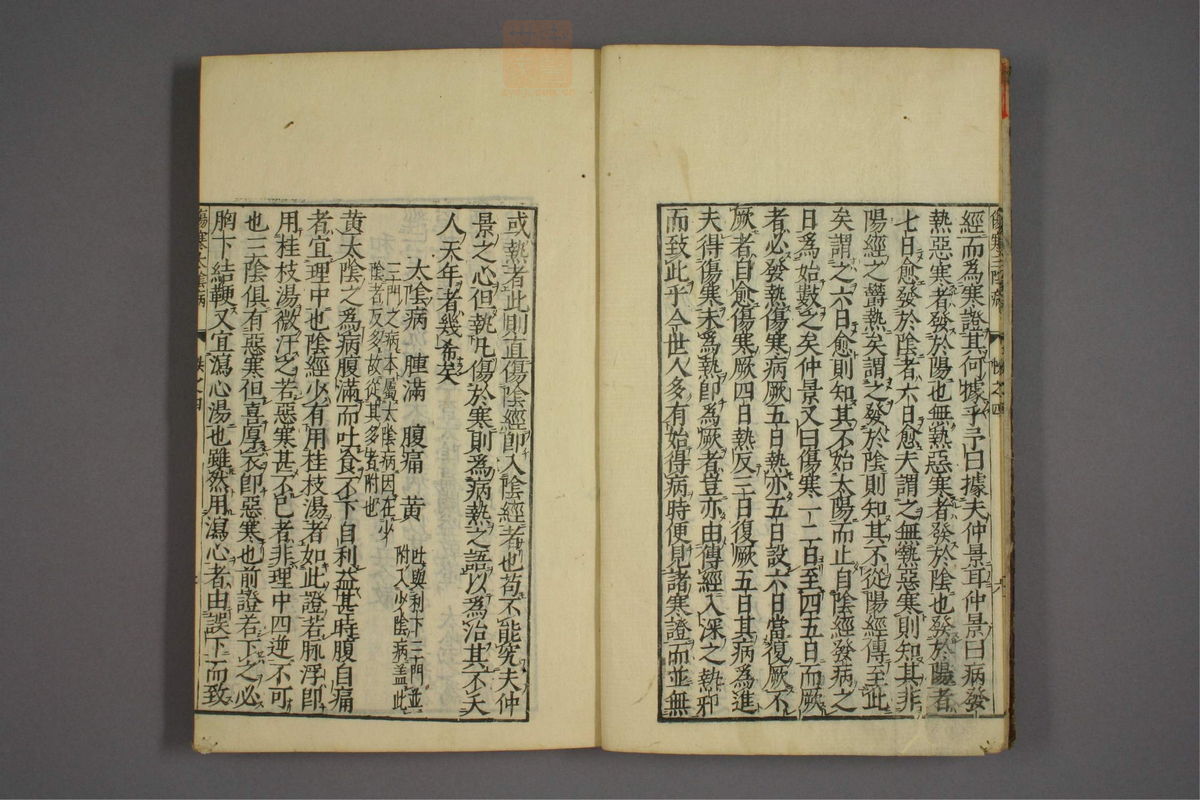 傷寒三陰病
卷之四
經而爲寒證其何據乎予曰據夫仲景耳仲景曰病發
熱惡寒者發於陽也無熱惡寒者發於陰也發於陽者
七日愈發於陰者六日愈夫謂之無熱惡寒則知其非
陽經之欝熱矣謂之發於陰則知其不從陽經傳至此
矣謂之六日愈則知其不始太陽而止自陰經發病之
日爲始數之矣仲景又曰傷寒一二日至四五日而厥
者必發熱傷寒病厥五日熱亦五日設六日當復厥不
厥者自愈傷寒厥四日熱反三日復厥五日其病爲進
夫得傷寒未爲熱即爲厥者豈亦由傳經入深之熱邪
而致此乎今世人多有始得病時便見諸寒證而並無
或熱者此則直傷陰經即入陰經者也苟不能究夫仲
景之心但執凡傷於寒則爲病熱之語以爲治其不夭
人天年者幾希矣
太陰病 腫滿 腹痛 黃 吐與利下三門並
附入少陰病蓋此
三門之病本屬太陰病因在少
陰者反多故從其多者附也
黃太陰之爲病腹滿而吐食不下自利益甚時腹自痛
者宜理中也陰經少有用桂枝湯者如此證若脉浮即
用桂枝湯微汗之若惡寒甚不已者非理中四逆不可
也三陰俱有惡寒但喜厚衣即惡寒也前證若下之必
胸下結鞕又宜瀉心湯也雖然用瀉心者由誤下而致
傷寒太陰病